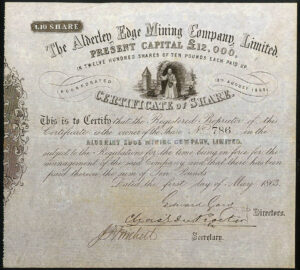 £10 SHARE
The Alderley Edge Mining Company, Limited.
PRESENT CAPITAL £12,000,
IN TWELVE HUNDRED SHARES OF TEN POUNDS EACH PAID UP
INCORPORATED
CERTIFICATE of SHARE.
This is to Certify that the Registered Proprietor of this
Certificate is the owner of the share No. 786 in the
ALDERLEY EDGE MINING COMPANY, LIMITED,
subject to the Regulations for the time being in force for the
management of the said Company and that there has been
paid thereon the sum of Ten Pounds
Dated the first day of May 1863.
Directors.
Secretary.